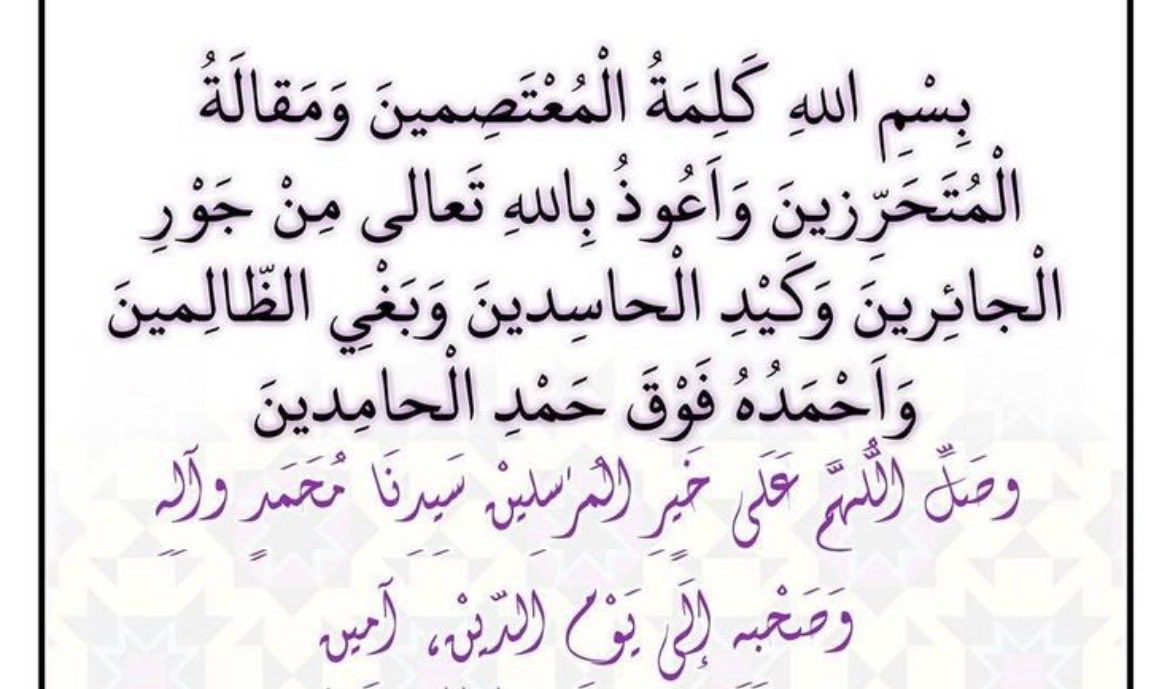 بِسْمِ اللهِ كَلِمَةُ الْمُعْتَصِمينَ وَمَقالَةُ
الْمُتَحَرِّزينَ وَاَعُوذُ بِاللهِ تَعالى مِنْ جَوْرِ
الْجائِرينَ وَكَيْدِ الْحاسِدينَ وَبَغْيِ الظّالِمينَ
وَاَحْمَدُهُ فَوْقَ حَمْدِ الْحامِدينَ
وصَلِّ اللَّهُمَّ عَلَى خَيرِ المُرسَلِينْ سَيِدِنَا مُحَمَدٍ وآلِهِ
وَصَحْبه إِلَى يَوْم الدّيْن، آمين